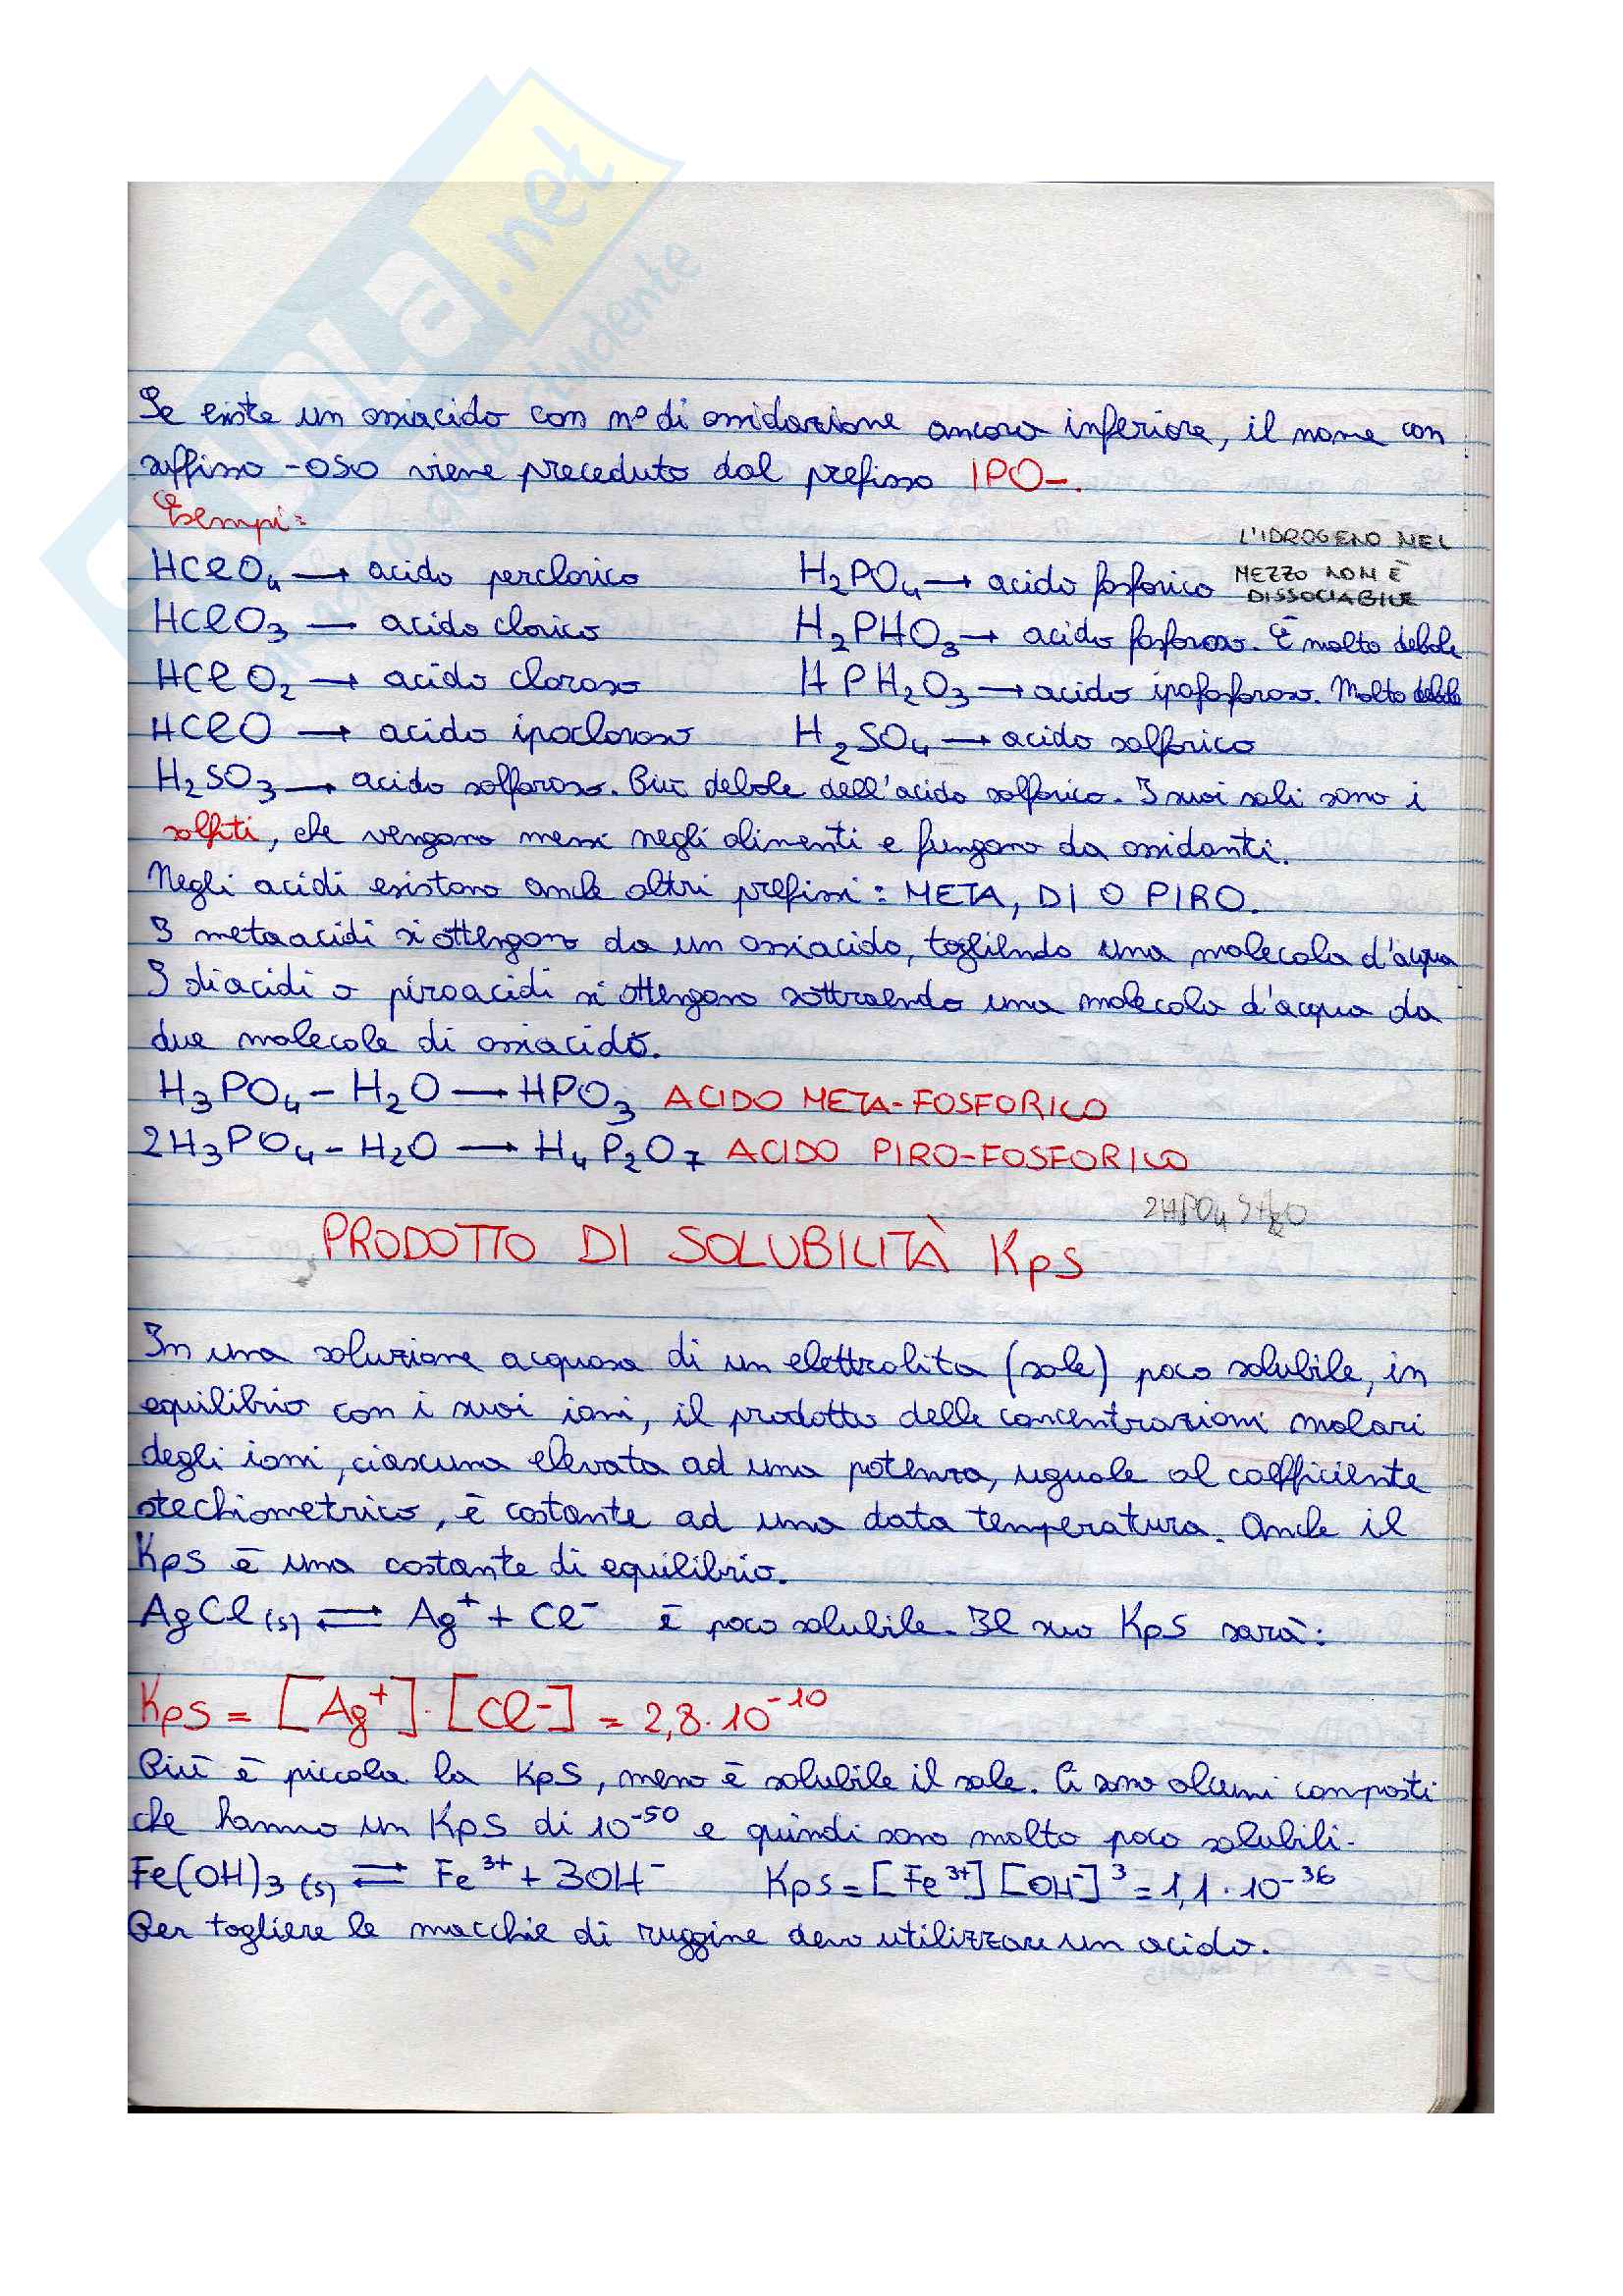 Se esiste un ossiacido con n° di ossidazione ancora inferiore, il nome con
suffisso -OSO viene preceduto dal prefisso IPO-.
Esempi:
L'IDROGENO NEL
HClO4 → acido perclorico H2PO4 → acido fosforico MEZZO NON È
DISSOCIABILE
HClO3 → acido clorico H2PHO3 → acido fosforoso. È molto debole
HClO2 → acido cloroso HPH2O3 → acido ipofosforoso. Molto debole
HClO → acido ipocloroso H2SO4 → acido solforico
H2SO3 → acido solforoso. Più debole dell'acido solforico. I suoi sali sono i
solfiti, che vengono messi negli alimenti e fungono da ossidanti.
Negli acidi esistono anche altri prefissi: META, DI O PIRO.
I metaacidi si ottengono da un ossiacido, togliendo una molecola d'acqua
I diacidi o piroacidi si ottengono sottraendo una molecola d'acqua da
due molecole di ossiacido.
H3PO4 - H2O → HPO3 ACIDO META-FOSFORICO
2H3PO4 - H2O → H4P2O7 ACIDO PIRO-FOSFORICO
PRODOTTO DI SOLUBILITÀ KpS
In una soluzione acquosa di un elettrolita (sale) poco solubile, in
equilibrio con i suoi ioni, il prodotto delle concentrazioni molari
degli ioni, ciascuna elevata ad una potenza, uguale al coefficiente
stechiometrico, è costante ad una data temperatura. Anche il
KpS è una costante di equilibrio.
AgCl(s) ⇌ Ag⁺ + Cl⁻ è poco solubile. Il suo KpS sarà:
KpS = [Ag⁺]·[Cl⁻] = 2,8·10⁻¹⁰
Più è piccola la KpS, meno è solubile il sale. Ci sono alcuni composti
che hanno un KpS di 10⁻⁵⁰ e quindi sono molto poco solubili.
Fe(OH)3(s) ⇌ Fe³⁺ + 3OH⁻ KpS = [Fe³⁺][OH⁻]³ = 1,1·10⁻³⁶
Per togliere le macchie di ruggine devo utilizzare un acido.